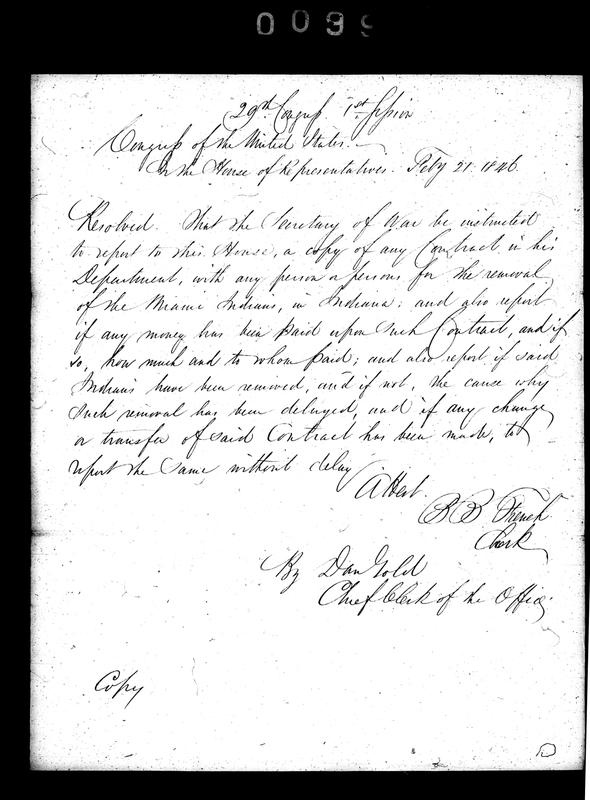 0039
29th Congress 1st Session
Congress of the United States.
In the House of Representatives. Feby 21. 1846.
Resolved. That the Secretary of War be instructed
to report to this House, a copy of any Contract in his
Department, with any person or persons for the removal
of the Miami Indians, in Indiana; and also report
if any money has been paid upon such Contract, and if
so, how much and to whom paid; and also report if said
Indians have been removed, and if not, the cause why
such removal has been delayed, and if any change
or transfer of said Contract has been made, to
report the same without delay
Attest.
B B French
Clerk
By Dan Gold
Chief Clerk of the Office
Copy